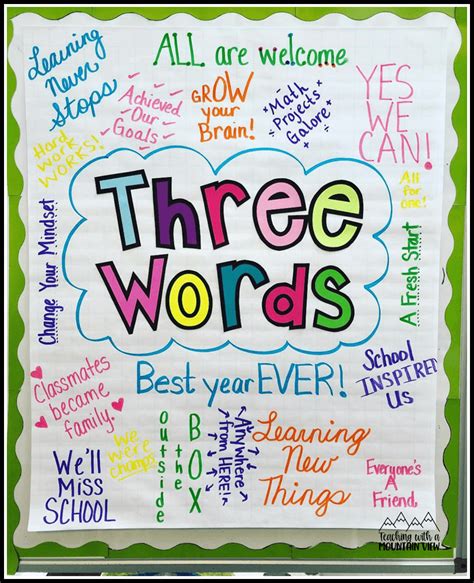 ALL are welcome
Learning
Never
Stops
Achieved
Our
Goals!
GROW
your
Brain!
Math
Projects
Galore
YES
WE
CAN!
Hard
work
WORKS!
All
for
one!
Change Your Mindset
Three
Words
A Fresh Start
Best year EVER!
School
INSPIRED
US
Classmates
became
family.
We
were
champs
outside
the
BOX
Anywhere
from HERE!
Learning
New
Things
We'll
MISS
SCHOOL
Everyone's
A
Friend
Teaching with a
MOUNTAIN VIEW